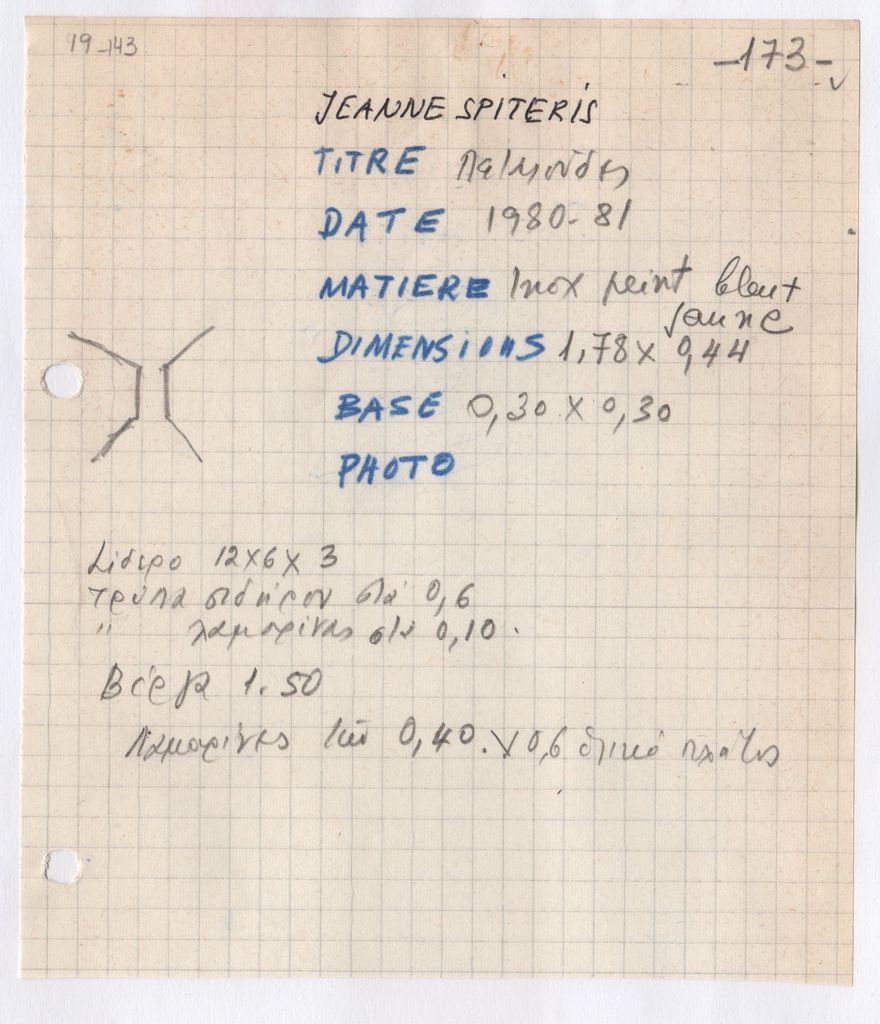 19-143
-173-
JEANNE SPITERIS
TITRE
DATE 1980-81
MATIERE Inox peint bleut
jaune
DIMENSIONS 1,78 x 0,44
BASE 0,30 x 0,30
PHOTO
Σίδερο 12x6x3
τρύπα σιδήρου στα 0,6
" λαμαρίνας στα 0,10.
Βέργα 1.50
Λαμαρίνες 0,40. x 0,6 πλάτος